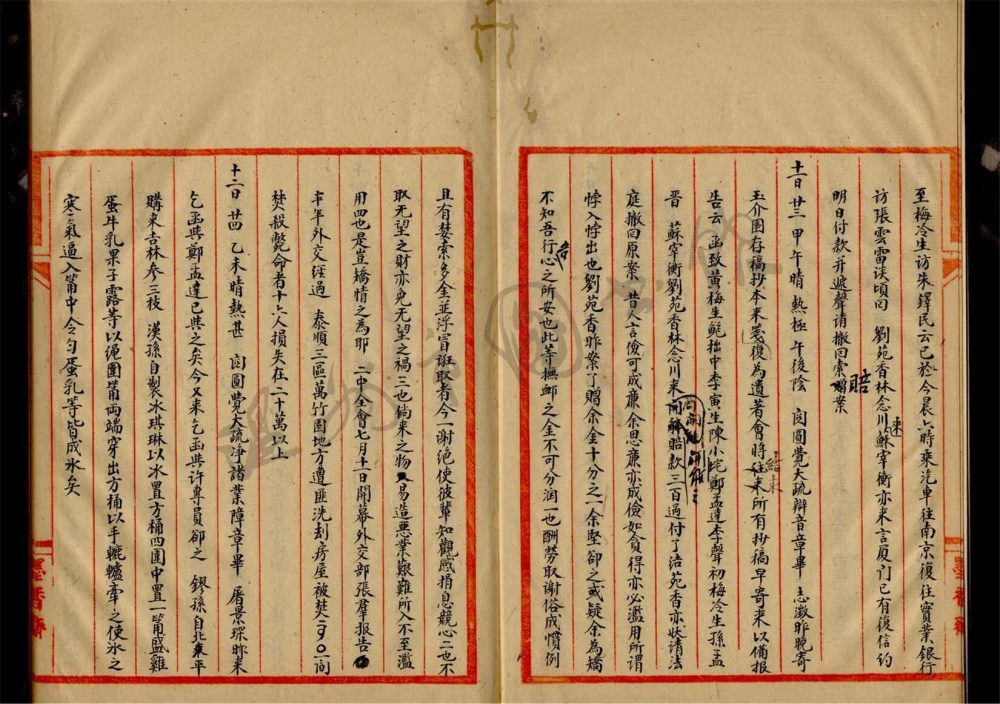 至梅冷生访朱鐸民云已於今晨六時乘汽車往南京復往實業銀行
访張雲雷谈頃回 劉苑香林念川蘇宰衡亦来言厦门已有復信约
速
明日付款并遮聲请撤回索贈案
賠
十一日 廿三 甲午晴 熱極 午後陰 閲圓覺大疏辩音章畢 志澂昨晚寄
玉介園存稿抄本来箋復為遺著會將往来所有抄稿早寄来以備報
結束
告云 函致黄梅生鲍
中李寅生陳小垞鄭孟達李聲初梅冷生孫孟
晋 蘇宰衡劉苑香林念川来
賠款三百過付了洁苑香亦妖请法
庭撤回原案 昔人言儉可成廉余思廉亦成儉如贪得亦必濫用所谓
悖入悖出也劉苑香昨案了贈余金十分之一余堅卻之或疑余為矯
不知吾行心之所安也此等撫卹之金不可分润一也酬劳取谢俗成慣例
吾
且有婪索多金並浮冒诳取者今一谢绝使彼輩知觀感捐息競心二也不
取无望之财亦免无望之禍三也倘来之物易造惡業艱難所入不至濫
用四也是豈矯情之為耶 二中全會七月十一日開幕外交部張羣報告
半年外交經過 泰順三區萬竹園地方遭匪洗刦房屋被焚
焚殺斃命者十六人損失在二十萬以上
十二日 廿四 乙未晴熱甚 閲圓覺大疏净諸業障章畢 屠景琛昨来
乞函與鄭孟達已與之矣今又来乞函與许專員卻之 鏐孫自北来平
購来吉林参三枝 漢孫自製冰琪琳以冰置方桶四圍中置一筩盛雞
蛋牛乳果子露等以绳圍筩兩端穿出方桶以手轆轤牽之使冰之
寒氣逼入筩中令匀蛋乳等皆成冰矣
墨香齋
墨香齋